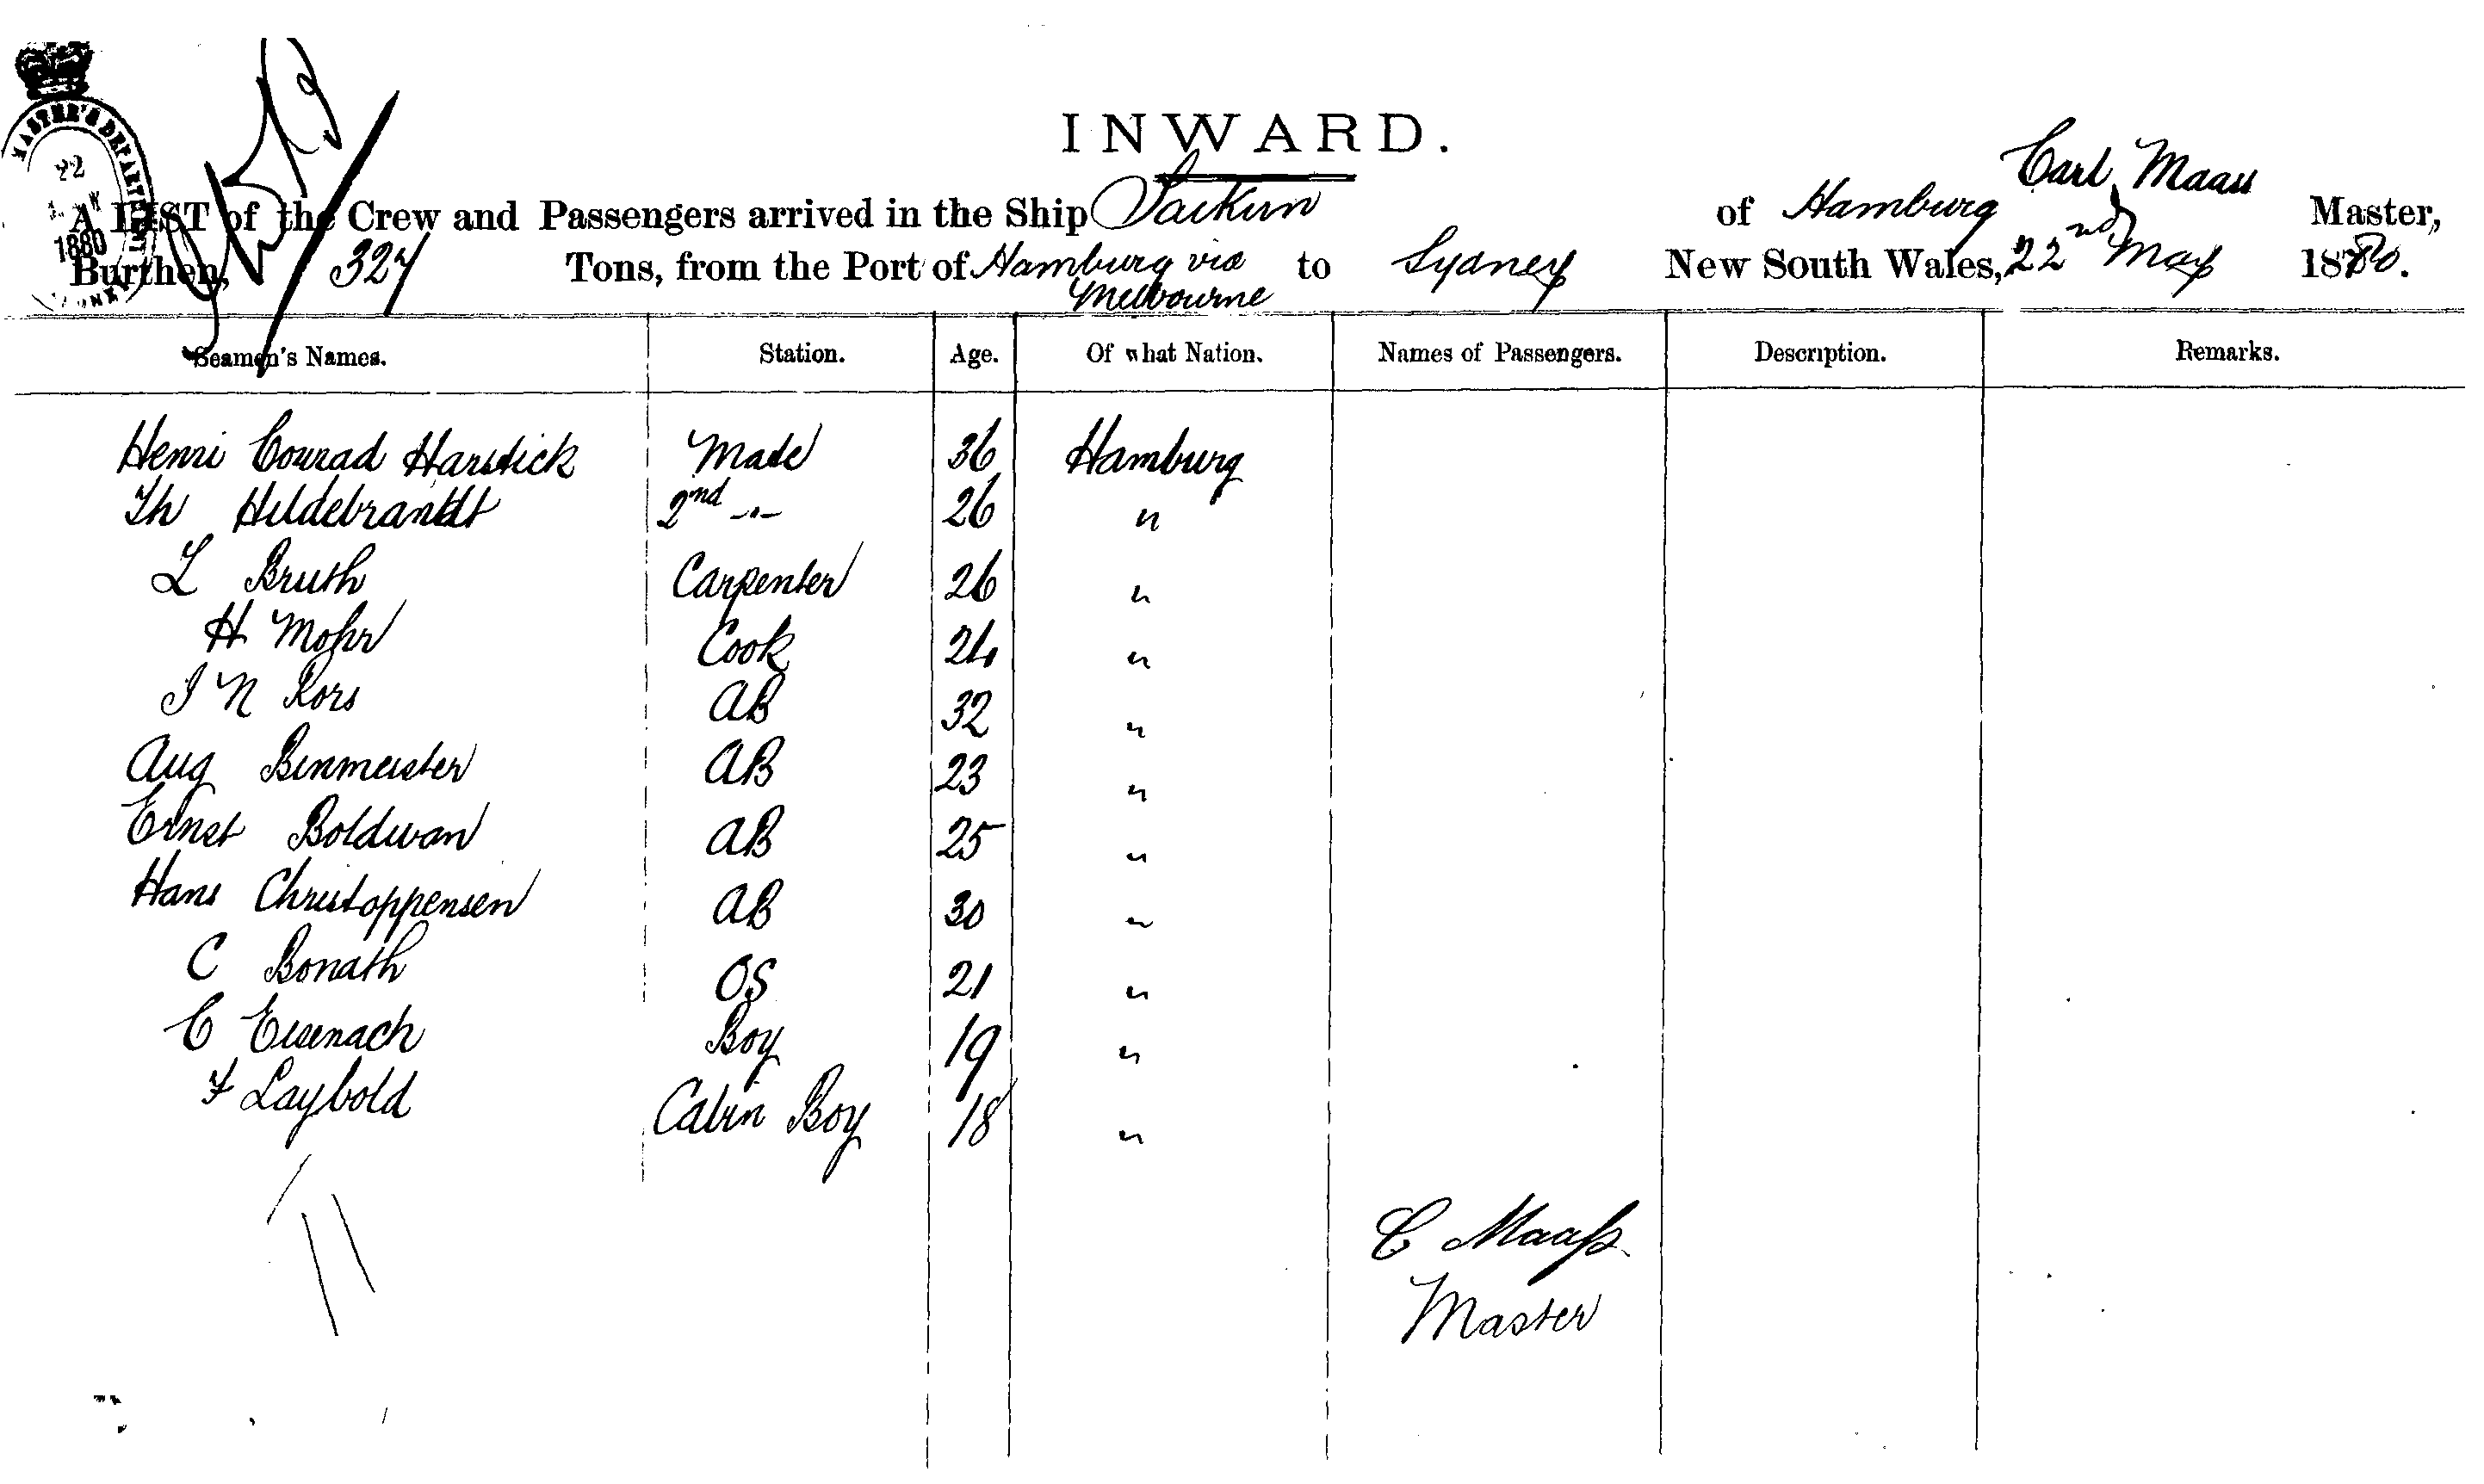 INWARD.
MASTER'S DEPARTMENT
22
1880
Carl Maass
A LIST of the Crew and Passengers arrived in the Ship of Hamburg Master,
Burthen, 327 Tons, from the Port of Hamburg via Melbourne to Sydney New South Wales, 22nd May 1880.
Seamen's Names. Station. Age. Of what Nation. Names of Passengers. Description. Remarks.
Henri Conrad Harstick Mate 36 Hamburg
Th Hildebrandt 2nd -"- 26 "
L Bruth Carpenter 26 "
H Mohr Cook 24 "
J N Kors AB 32 "
Aug Binmeister AB 23 "
Ernst Boldwan AB 25 "
Hans Christoppensen AB 30 "
C Bonath OS 21 "
C Eisenach Boy 19 "
F Laybold Cabin Boy 18 "
11
C Maaß
Master